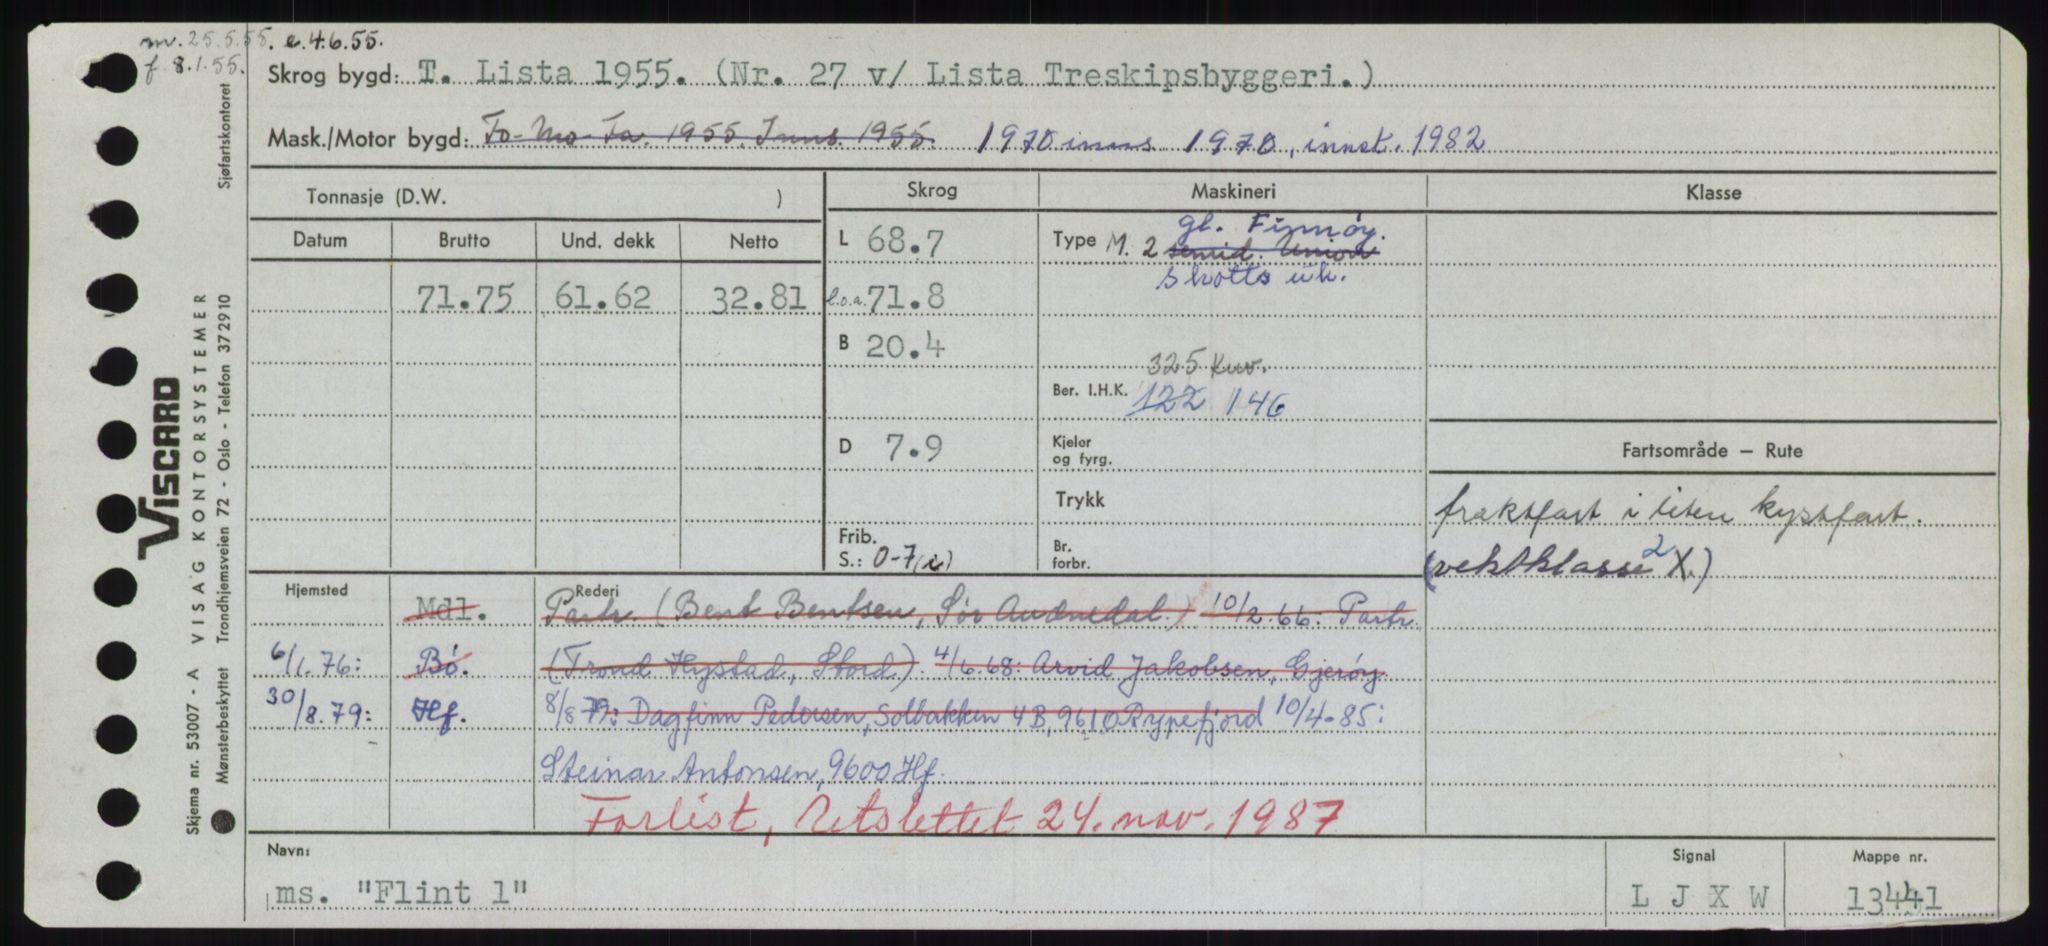 m. 25.5.55. e. 4.6.55.
f. 8.1.55.
Skrog bygd: T. Lista 1955. (Nr. 27 v/ Lista Treskipsbyggeri.)
Mask./Motor bygd: To-Mo-Fa. 1955. Inns. 1955 1970 inns 1970, innst. 1982
Tonnasje (D.W. )
Skrog
Maskineri
Klasse
Datum Brutto Und. dekk Netto
L 68.7
Type M. 2 semid. Union
gl. Finnøy.
5 kotts
71.75 61.62 32.81
l.o.a. 71.8
B 20.4
325 Kuv.
Ber. I.H.K. 122 146
D 7.9
Kjeler
og fyrg.
Fartsområde — Rute
Trykk
fraktfart i liten kystfart.
Frib.
S.: 0-7
Br.
forbr.
(vektklasse 2 X.)
Hjemsted
Rederi
Mdl. Partr. (Bent Bentsen, Sør Audnedal.) 10/2.66: Partr.
6/1.76: Bø. (Trond Hystad, Stord). 4/6.68: Arvid Jakobsen, Gjerøy.
30/8.79: Hf. 8/8 79: Dagfinn Pedersen, Solbakken 4B, 9610 Rypefjord 10/4-85:
Steinar Antonsen, 9600 Hf.
Forlist, Utslettet 24. nov. 1987
Navn:
ms. "Flint 1"
Signal
L J X W
Mappe nr.
13441
Sjøfartskontoret
VISCARD
VISAG KONTORSYSTEMER
Trondhjemsveien 72 - Oslo - Telefon 372910
Skjema nr. 53007 - A
Mønsterbeskyttet